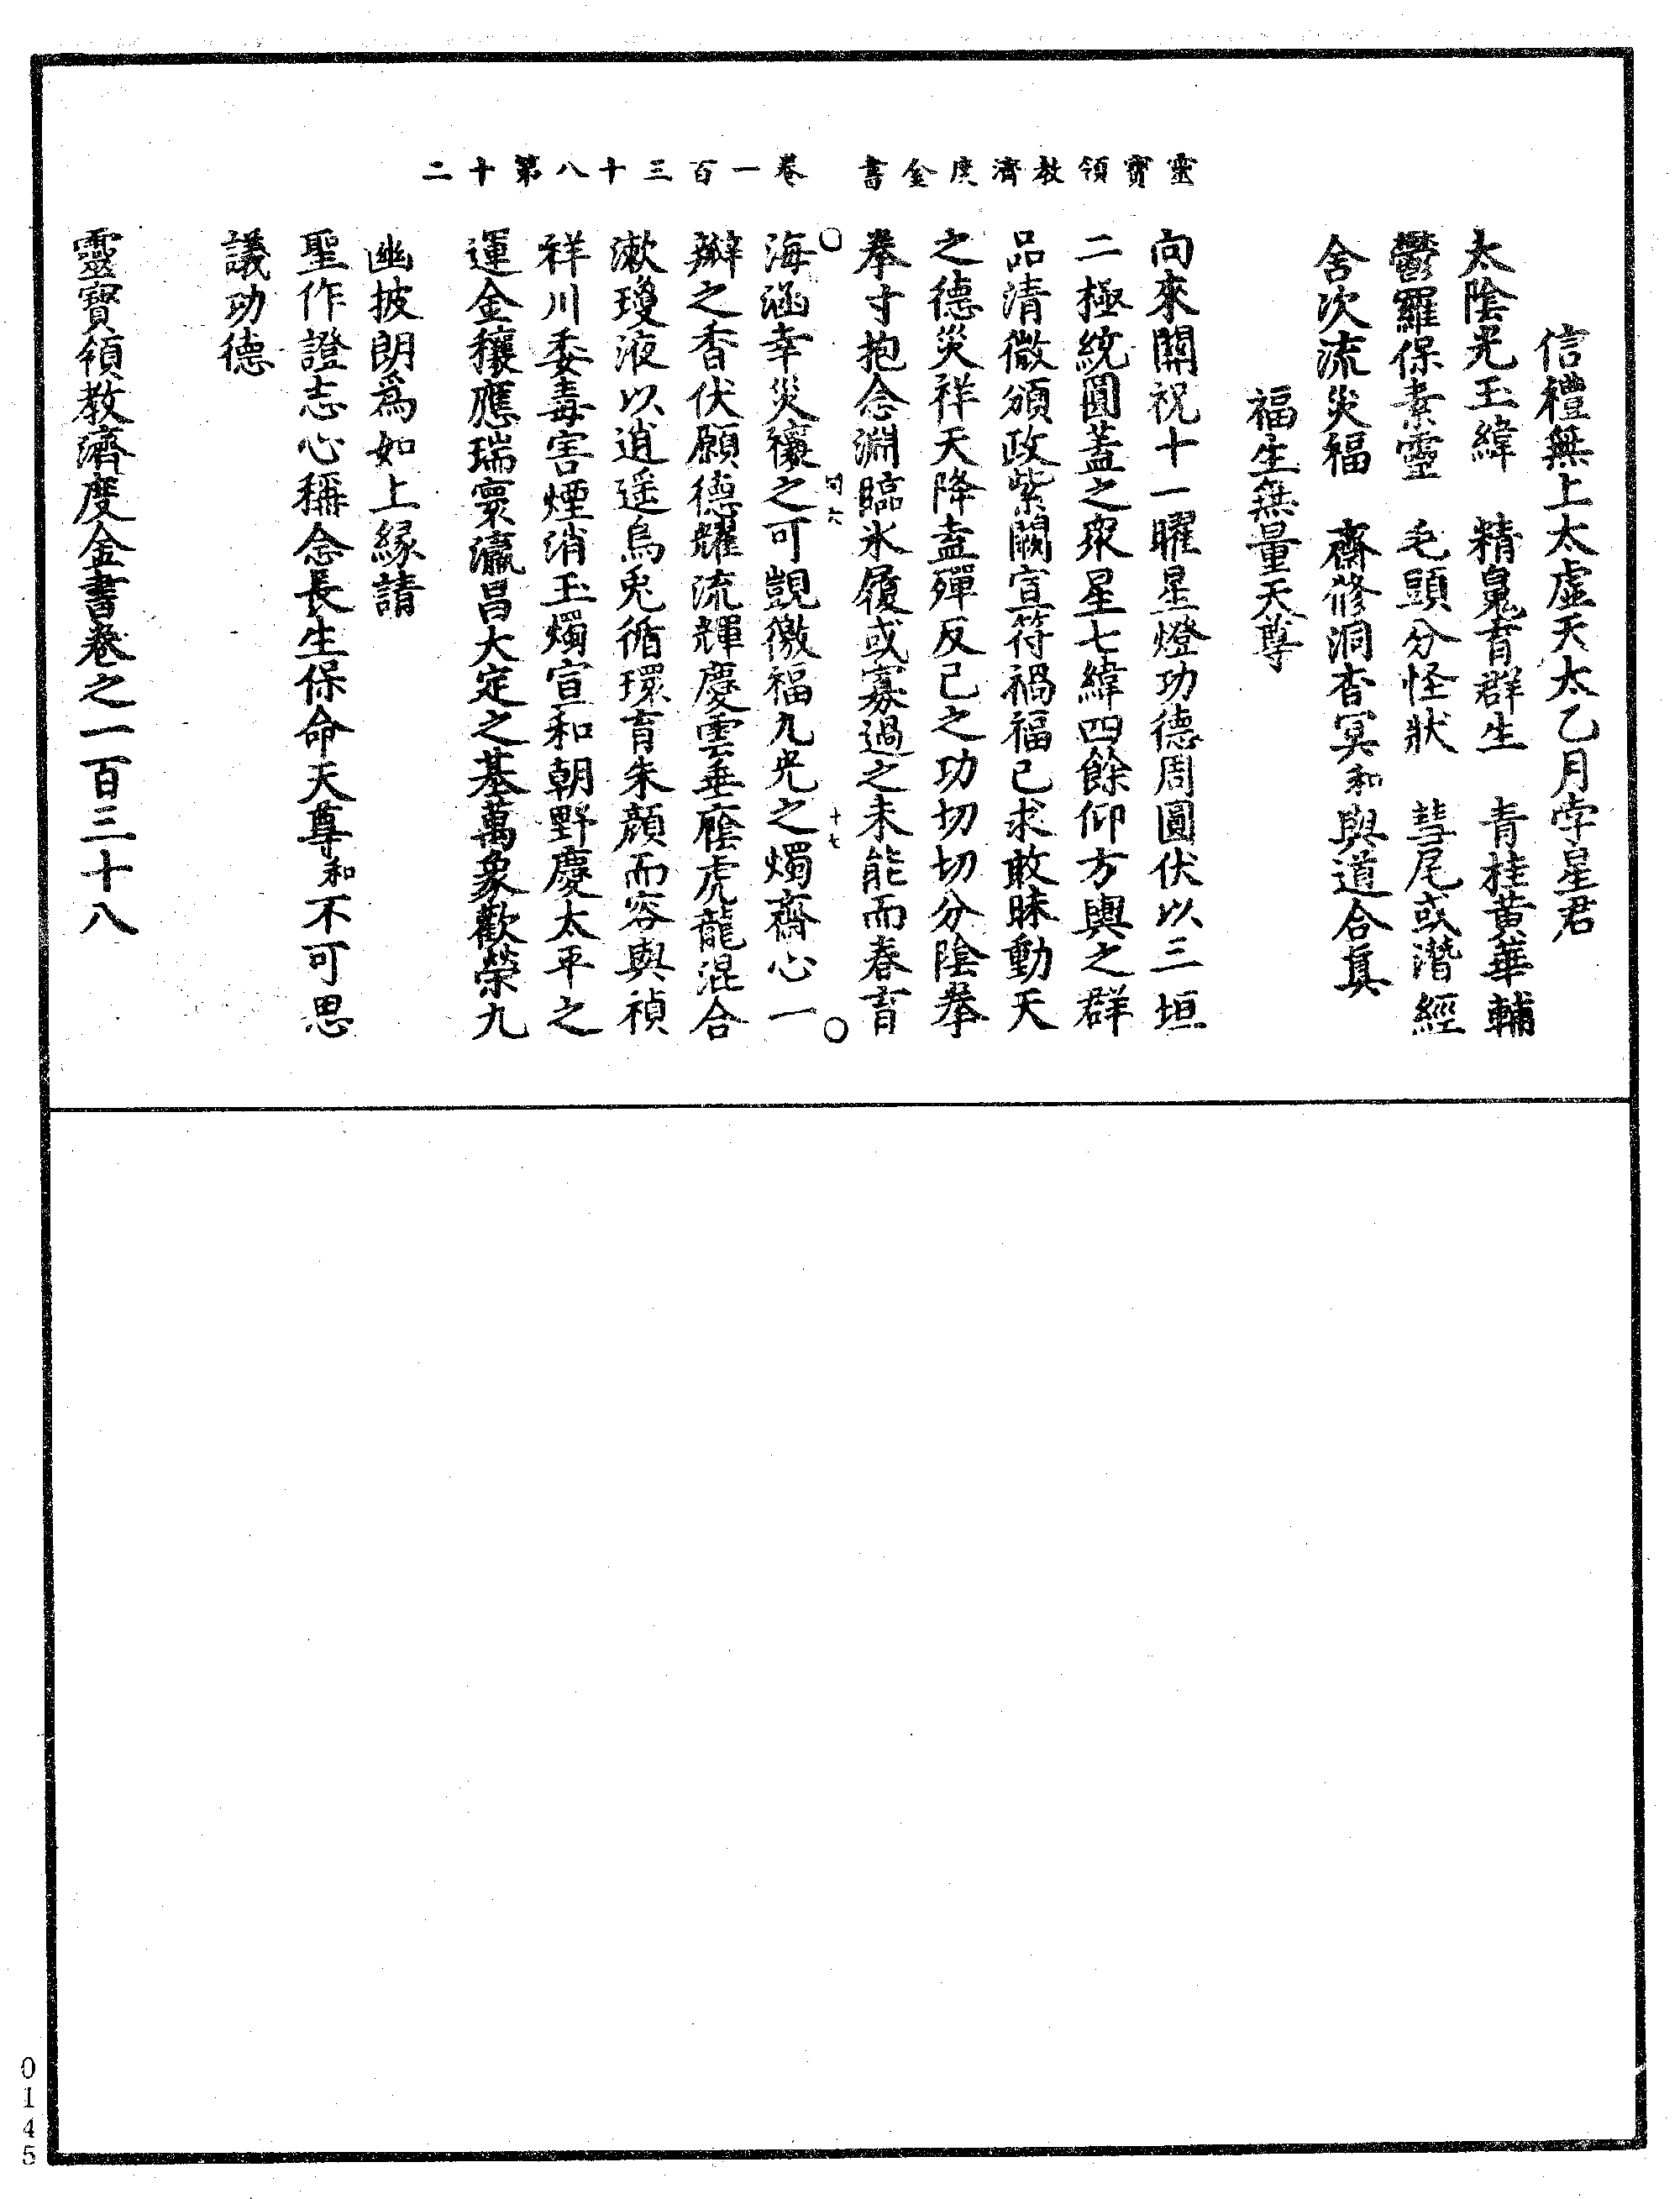 靈寶領教濟度金書　卷一百三十八第十二
信禮無上太虛天太乙月孛星君
太陰光玉緯　精鬼育群生　青桂黄華輔
鬱羅保素靈　毛頭分怪狀　彗尾或潛經
舍次流災福　齋修洞杳冥和與道合真
福生無量天尊
向來關祝十一曜星燈功德周圓伏以三垣
二極統圓蓋之衆星七緯四餘仰方輿之群
品清微頒政紫闕宣符禍福已求敢昧動天
之德災祥天降盍殫反己之功切切分陰拳
拳寸抱念淵臨氷履或寡過之未能而春育
海涵幸災禳之可覬徼福九光之燭齋心一
瓣之香伏願德耀流輝慶雲垂廕虎龍混合
漱瓊液以逍遥烏兎循環育朱顔而容與禎
祥川委毒害煙消玉燭宣和朝野慶太平之
運金穰應瑞寰瀛昌大定之基萬象歡榮九
幽披朗爲如上縁請
聖作證志心稱念長生保命天尊和不可思
議功德
靈寶領教濟度金書卷之一百三十八
十七
0145